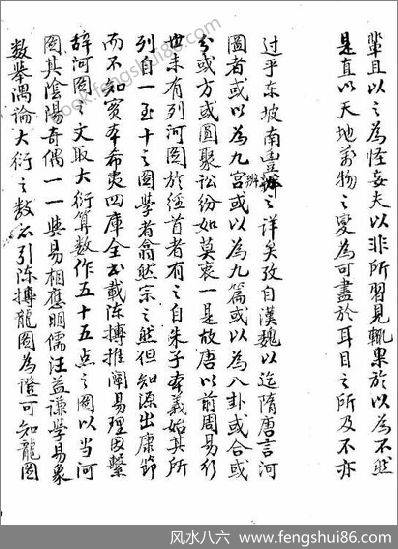 輩且以之為怪妄夫以非所習見輒果於以為不然
是直以天地萬物之變為可盡於耳目之所及不亦
過乎東坡南豐辨之詳矣攷自漢魏以迄隋唐言河
圖者或以為九宮或以為九篇或以為八卦或合或
分或方或圓聚訟紛如莫衷一是故唐以前周易行
世未有列河圖於經首者有之自朱子本義始其所
列自一至十之圖學者翕然宗之然但知源出康節
而不知實本希夷四庫全書載陳摶推闡易理因繫
辭河圖之文取大衍算數作五十五點之圖以當河
圖其陰陽奇偶一一與易相應明儒汪益謙學易象
數舉隅論大衍之數亦引陳摶龍圖為證可知龍圖
book.fengshui86.com
风水八六 - www.fengshui86.com